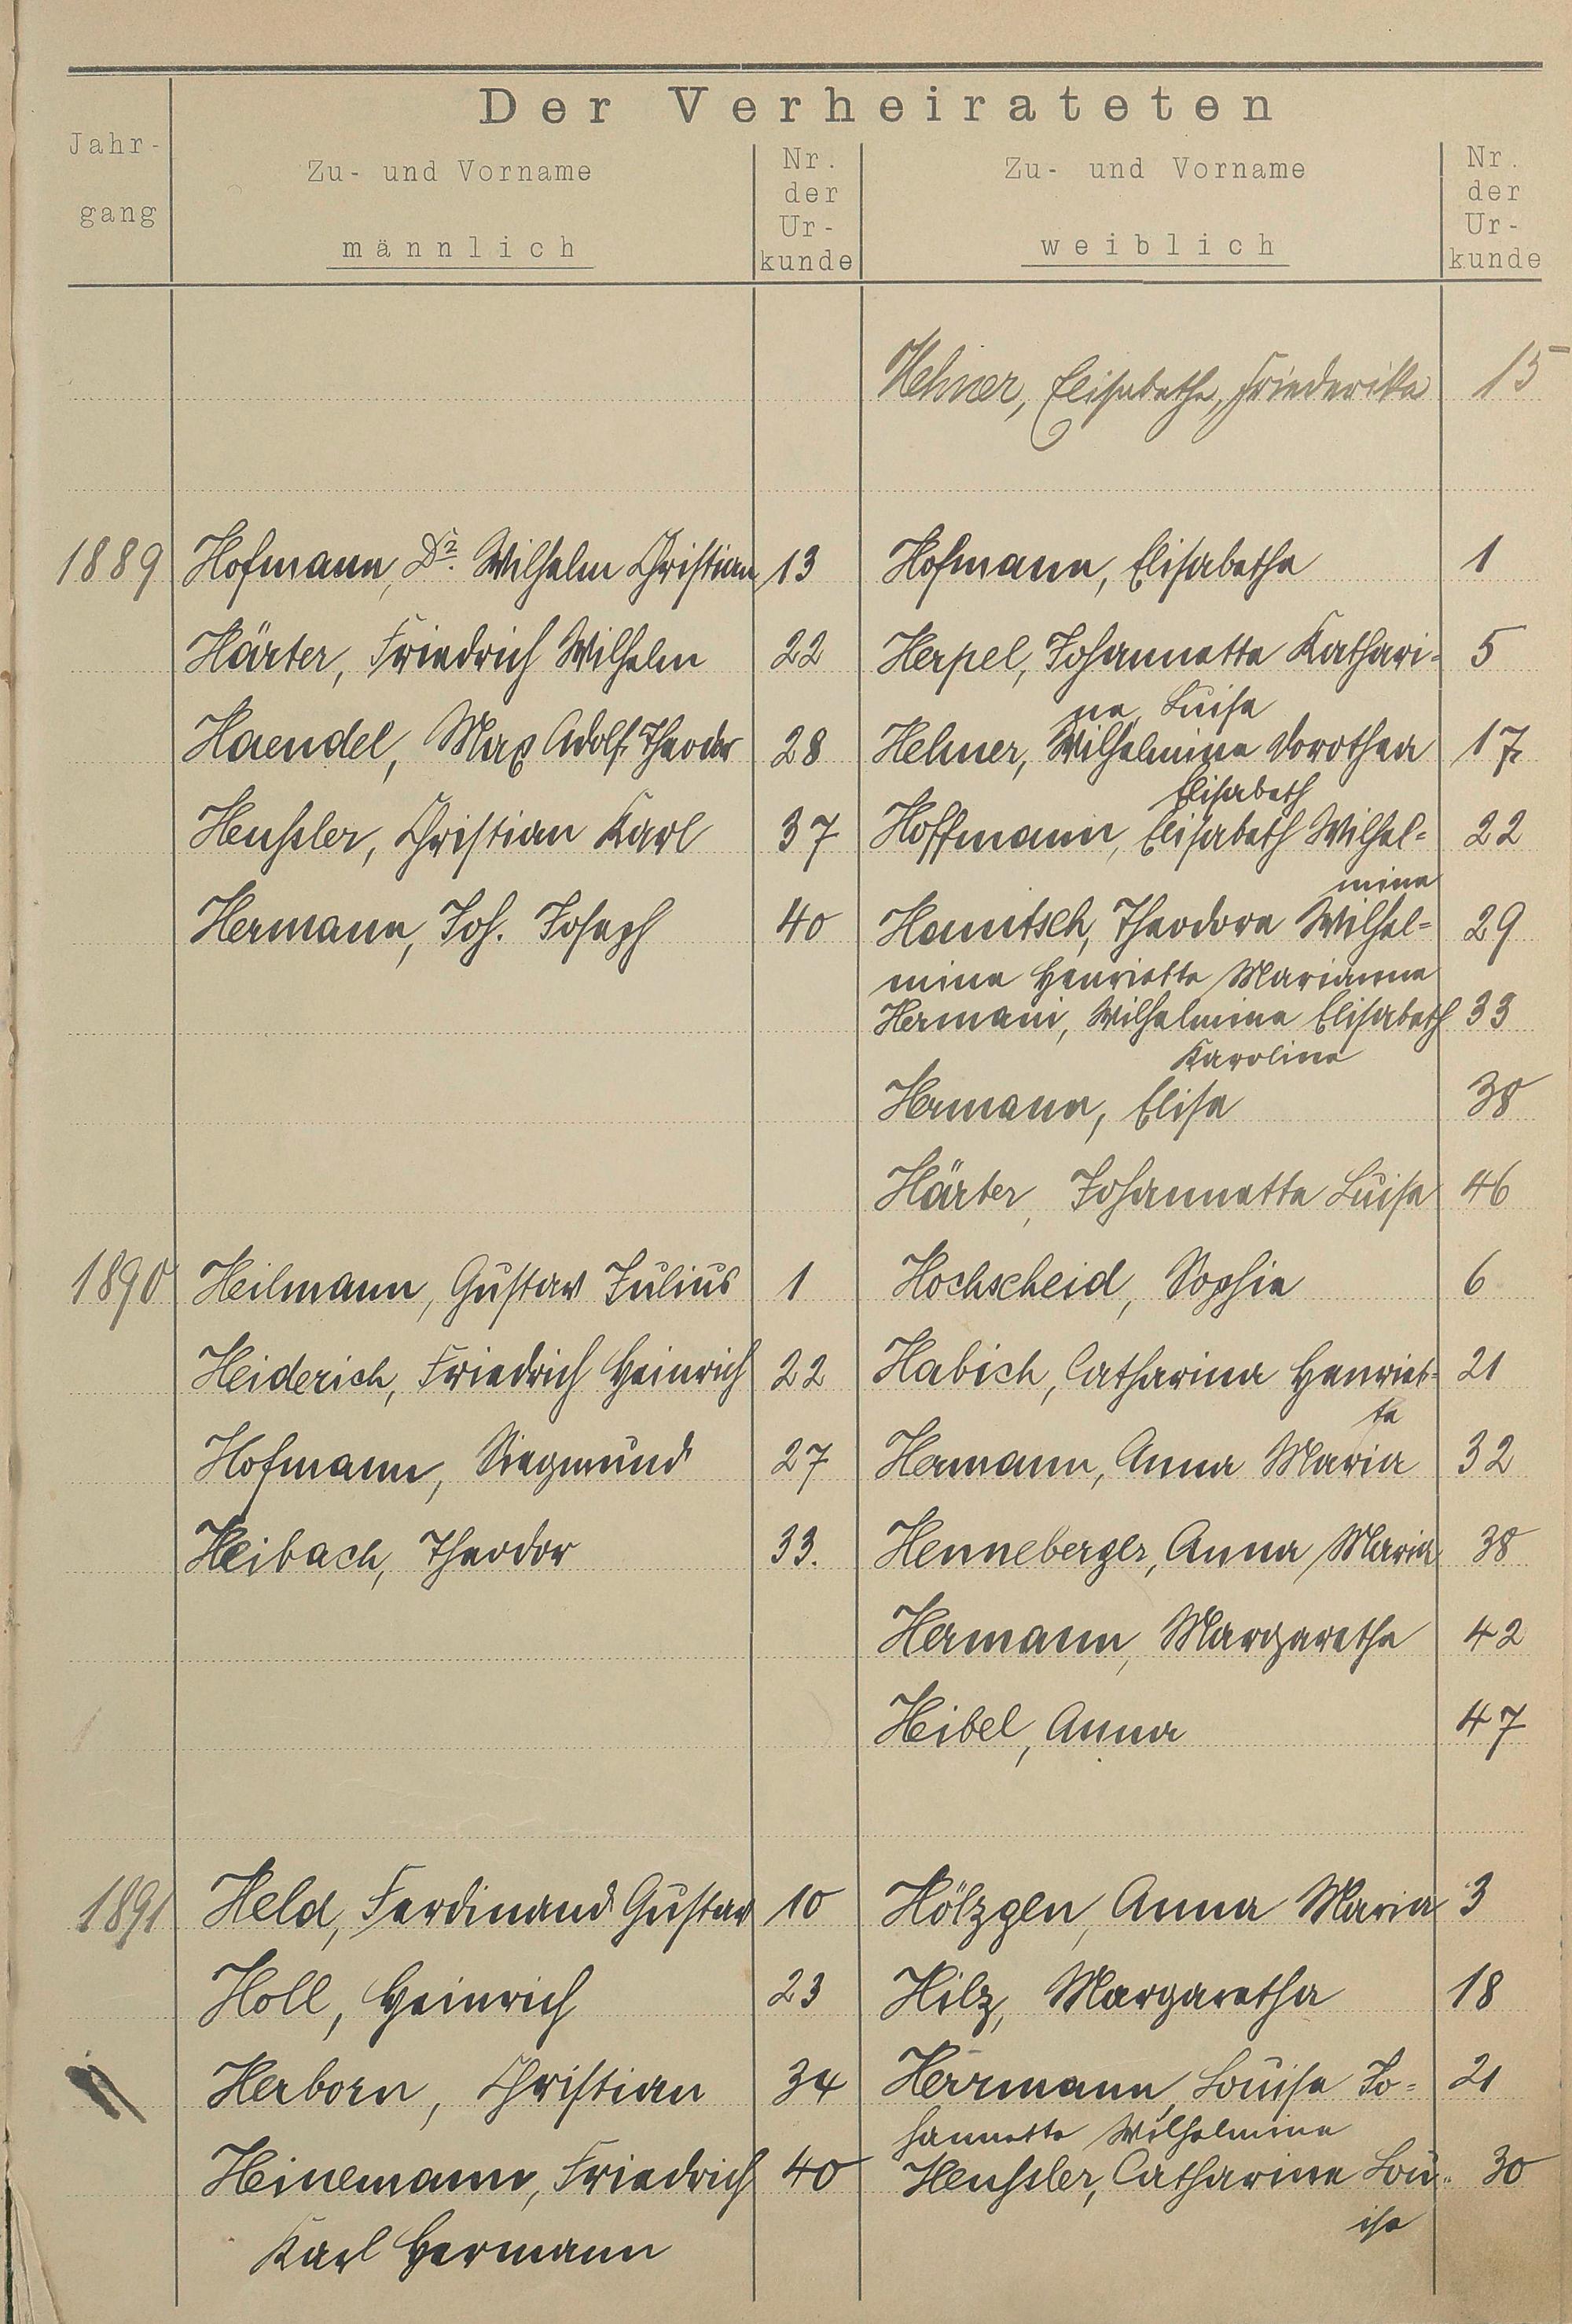 Der Verheirateten
Jahr-
gang
Zu- und Vorname
männlich
Nr.
der
Ur-
kunde
Zu- und Vorname
weiblich
Nr.
der
Ur-
kunde
Hehner, Elisabethe, Friederike 15
1889 Hofmann, Dr. Wilhelm Christian 13 Hofmann, Elisabethe 1
Härter, Friedrich Wilhelm 22 Herpel, Johannette Kathari- 5
ne Luise
Haendel, Max Adolf Theodor 28 Hehner, Wilhelmine Dorothea 17
Elisabeth
Henßler, Christian Karl 37 Hoffmann, Elisabeth Wilhel= 22
mine
Hermann, Joh. Joseph 40 Hanitsch, Theodore Wilhel= 29
mine Henriette Marianne
Hermani, Wilhelmine Elisabeth 33
Karoline
Hermann, Elise 38
Härter, Johannette Luise 46
1890 Heilmann, Gustav Julius 1 Hochscheid, Sophie 6
Heiderich, Friedrich Heinrich 22 Habich, Catharina Henriet- 21
te
Hofmann, Siegmund 27 Hermann, Anna Maria 32
Heibach, Theodor 33. Henneberger, Anna Maria 38
Hermann, Margarethe 42
Heibel, Anna 47
1891 Held, Ferdinand Gustav 10 Hölzgen, Anna Maria 3
Holl, Heinrich 23 Hilz, Margaretha 18
Herborn, Christian 34 Herrmann, Louise Jo= 21
hannette Wilhelmine
Heinemann, Friedrich 40 Henßler, Catharine Lou= 30
ise
Karl Hermann